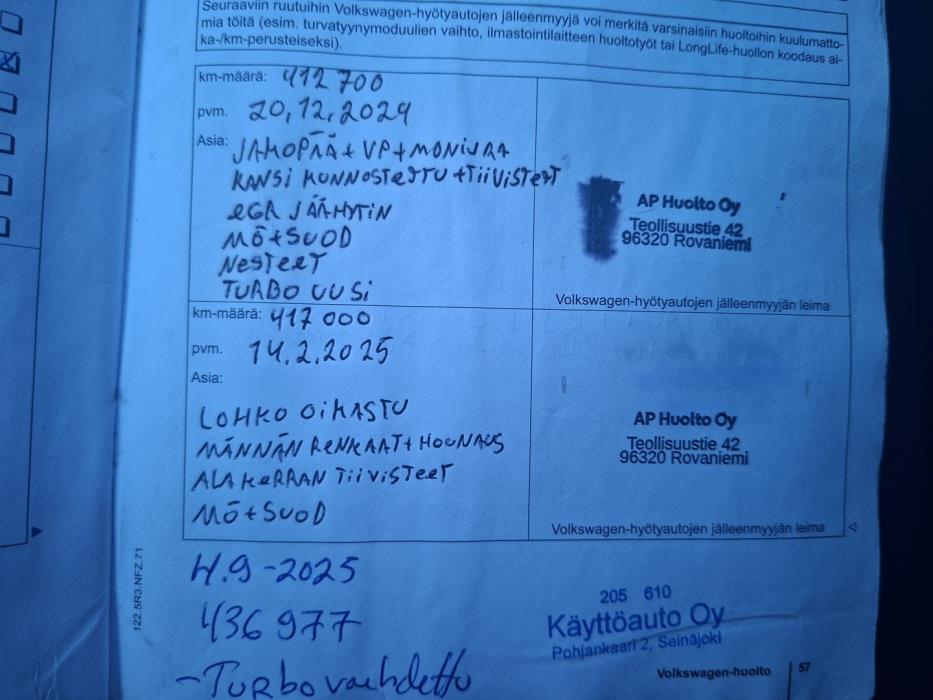 Seuraaviin ruutuihin Volkswagen-hyötyautojen jälleenmyyjä voi merkitä varsinaisiin huoltoihin kuulumatto-
mia töitä (esim. turvatyynymoduulien vaihto, ilmastointilaitteen huoltotyöt tai LongLife-huollon koodaus ai-
ka-/km-perusteiseksi).
km-määrä: 412 700
pvm. 20,12,2024
Asia: JAKOPÄÄ + VP + MONIURA
KANSI KUNNOSTETTU + TiiViSTEET
EGR JÄÄHYTIN
MÖ + SUOD
NESTEET
TURBO UUSi
AP Huolto Oy
Teollisuustie 42
96320 Rovaniemi
Volkswagen-hyötyautojen jälleenmyyjän leima
km-määrä: 417 000
pvm. 14.2.2025
Asia:
LOHKO OiKASTU
MÄNNÄN RENKAAT + HOONAUS
ALAKERRAN TiiViSTEET
MÖ + SUOD
AP Huolto Oy
Teollisuustie 42
96320 Rovaniemi
Volkswagen-hyötyautojen jälleenmyyjän leima
4.9-2025
436 977
- Turbo vaihdettu
205 610
Käyttöauto Oy
Pohjankaari 2, Seinäjoki
Volkswagen-huolto 57
122.5R3.NFZ.71